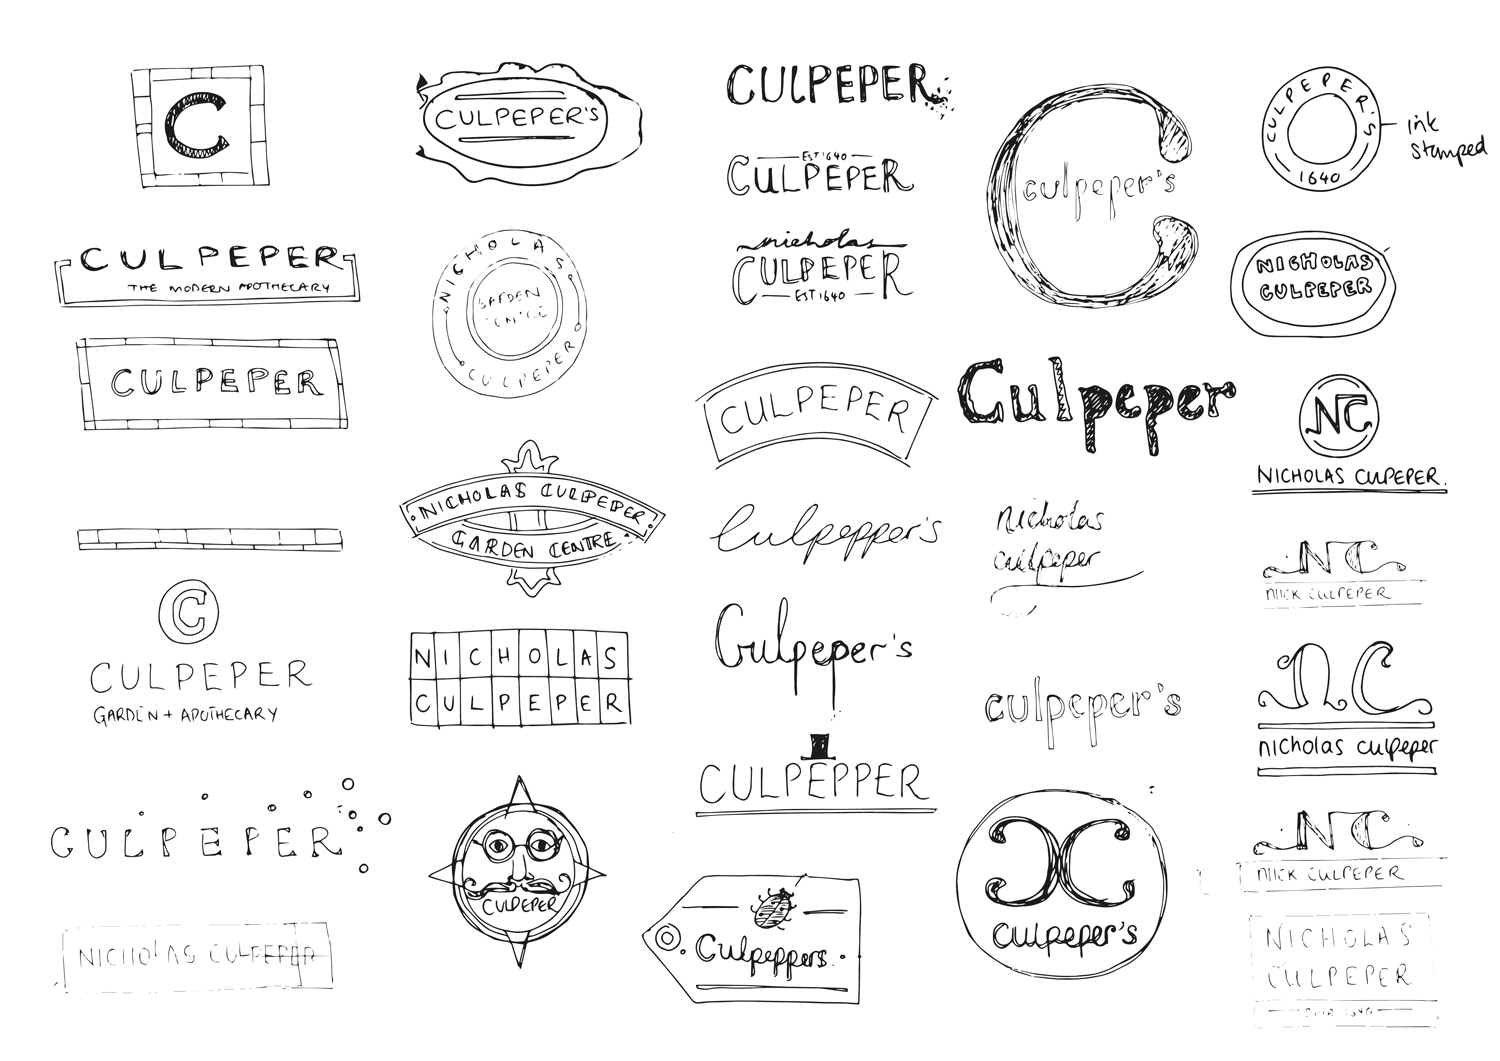 C
CULPEPER
THE MODERN APOTHECARY
CULPEPER
C
CULPEPER
GARDEN + APOTHECARY
CULPEPER
NICHOLAS CULPEPER
CULPEPER'S
NICHOLAS
GARDEN
CULPEPER
NICHOLAS CULPEPER
GARDEN CENTRE
NICHOLAS
CULPEPER
CULPEPER
CULPEPER
EST 1640
CULPEPER
nicholas
CULPEPER
EST 1640
CULPEPER
Culpepper's
Culpeper's
CULPEPPER
Culpeppers.
C
culpeper's
Culpeper
Nicholas
culpeper
culpeper's
C C
culpeper's
CULPEPER'S
1640
ink
stamped
NICHOLAS
CULPEPER
NC
NICHOLAS CULPEPER.
NC
NICK CULPEPER
nC
nicholas culpeper
NC
NICK CULPEPER
NICHOLAS
CULPEPER